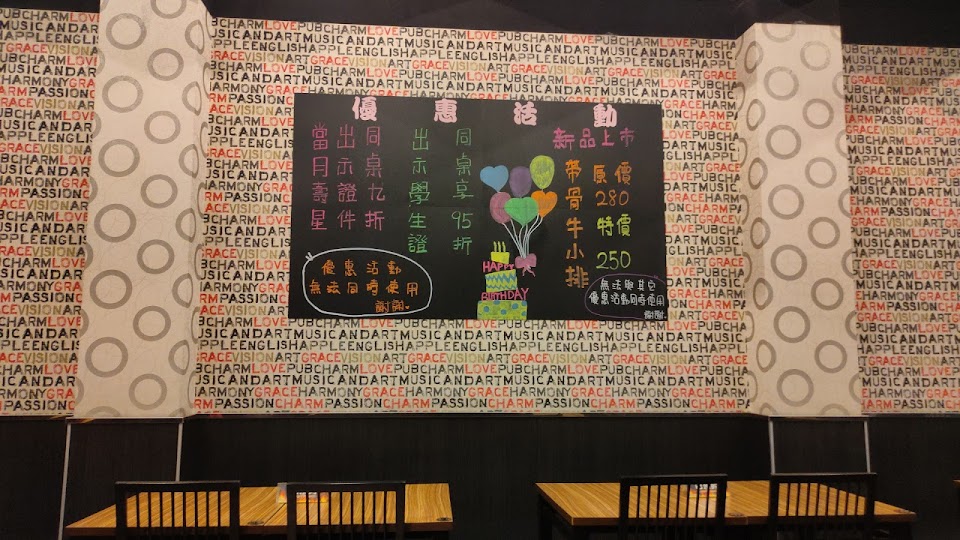 優惠活動
當月壽星
出示證件
同桌九折
出示學生證
同桌享95折
優惠活動
無法同時使用
謝謝
HAPPY
BIRTHDAY
新品上市
帶骨牛小排
原價
280
特價
250
無法與其它
優惠活動同時使用
謝謝
PUBCHARMLOVEPUBCHARMLOVEPUBCHARM
MUSICANDARTMUSICANDARTMUSICANDART
APPLEENGLISHAPPLEENGLISHAPPLEENGLISH
GRACEVISIONARTGRACEVISIONART
HARMONYGRACE
CHARMPASSIONCHARMPASSION